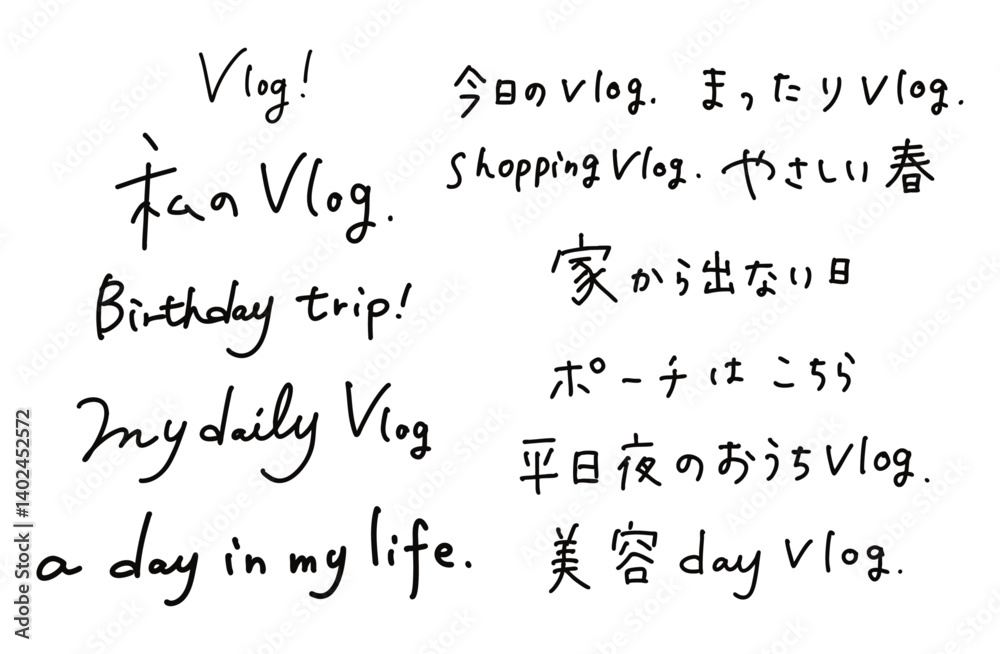 Vlog!
私のVlog.
Birthday trip!
my daily Vlog
a day in my life.
今日のvlog. まったりVlog.
shopping Vlog. やさしい春
家から出ない日
ポーチは こちら
平日夜のおうちVlog.
美容day Vlog.
Adobe Stock | #1402452572